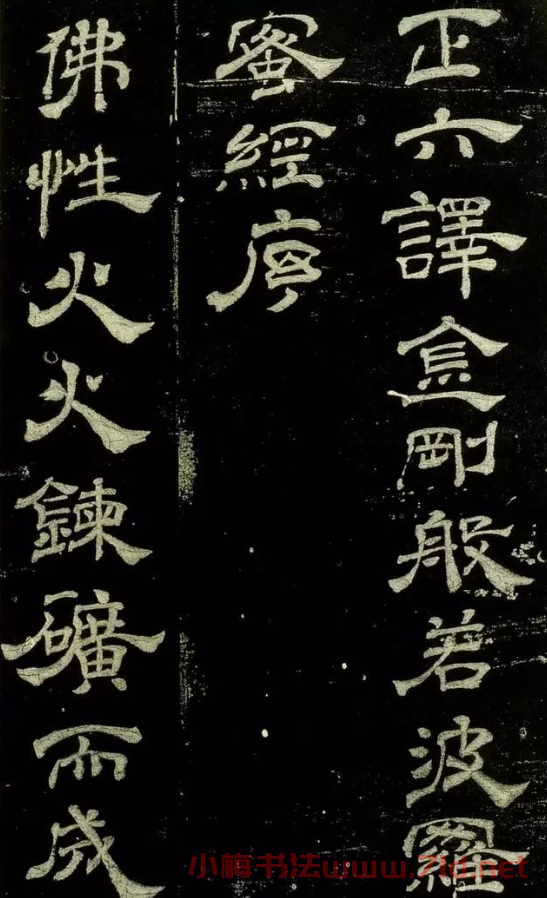 正六譯金剛般若波羅
蜜經序
佛性火火鍊礦而成
小梅书法www.7ld.net